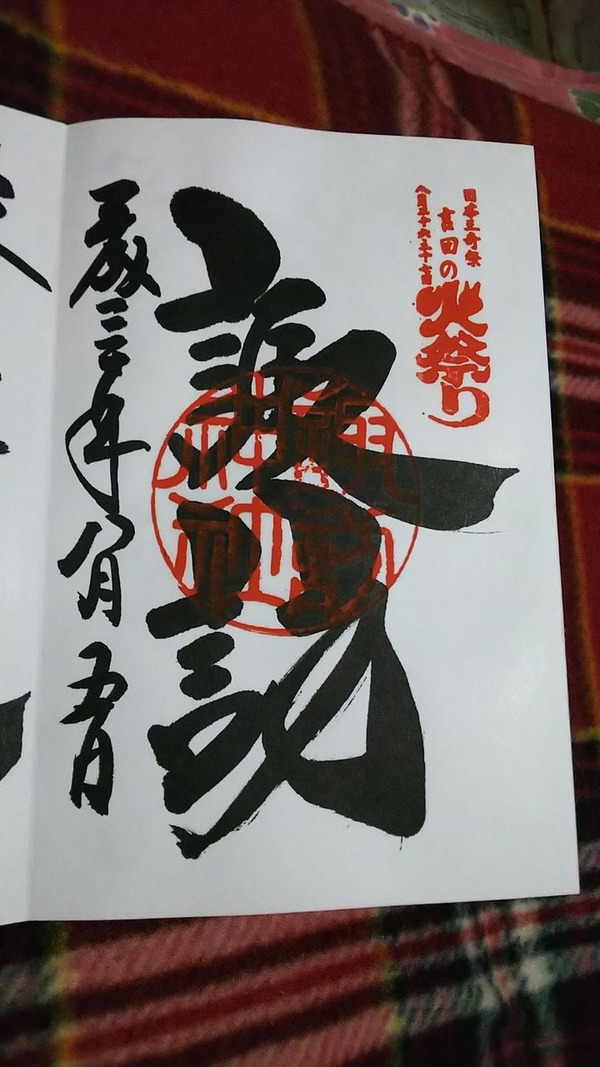 日本三奇祭
吉田の火祭り
八月二十六二十七日
諏訪
諏訪
神社
平成三十年八月五日